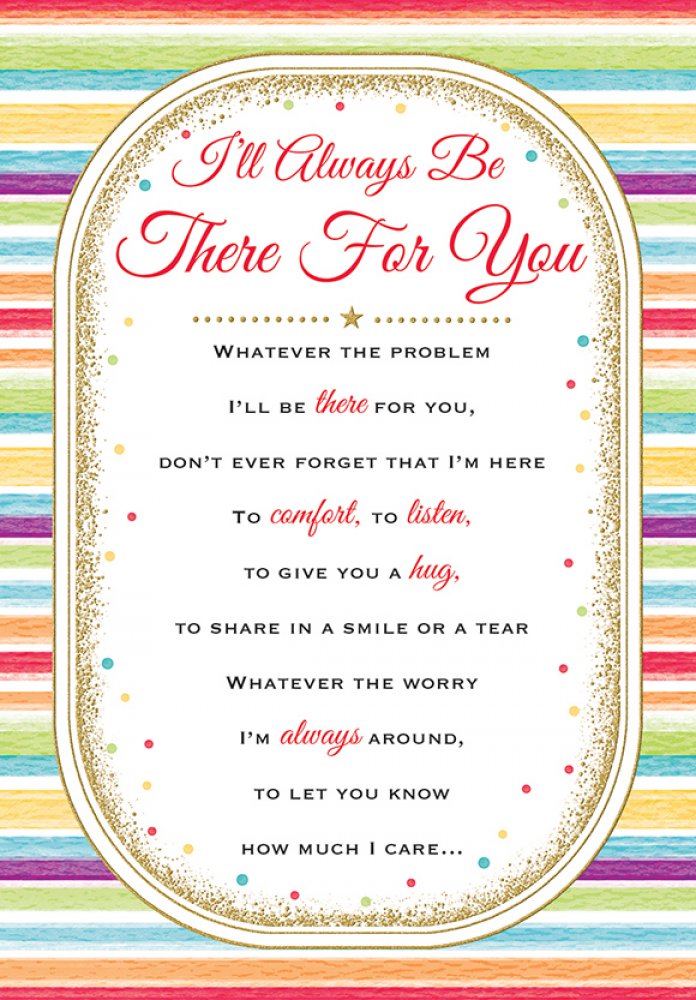 I'll Always Be
There For You
Whatever the problem
I'll be there for you,
don't ever forget that I'm here
To comfort, to listen,
to give you a hug,
to share in a smile or a tear
Whatever the worry
I'm always around,
to let you know
how much I care...